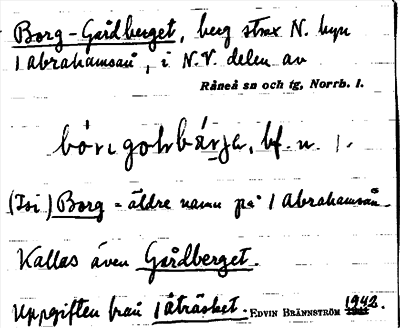 Borg-Gårdberget, berg strax N. byn
1 Abrahamsån, i N.V. delen av
Råneå sn och tg, Norrb. l.
bf. n. 1.
(Isi) Borg = äldre namn på 1 Abrahamsån.
Kallas även Gårdberget.
Uppgiften från 1 åträsket. EDVIN BRÄNNSTRÖM 1942.